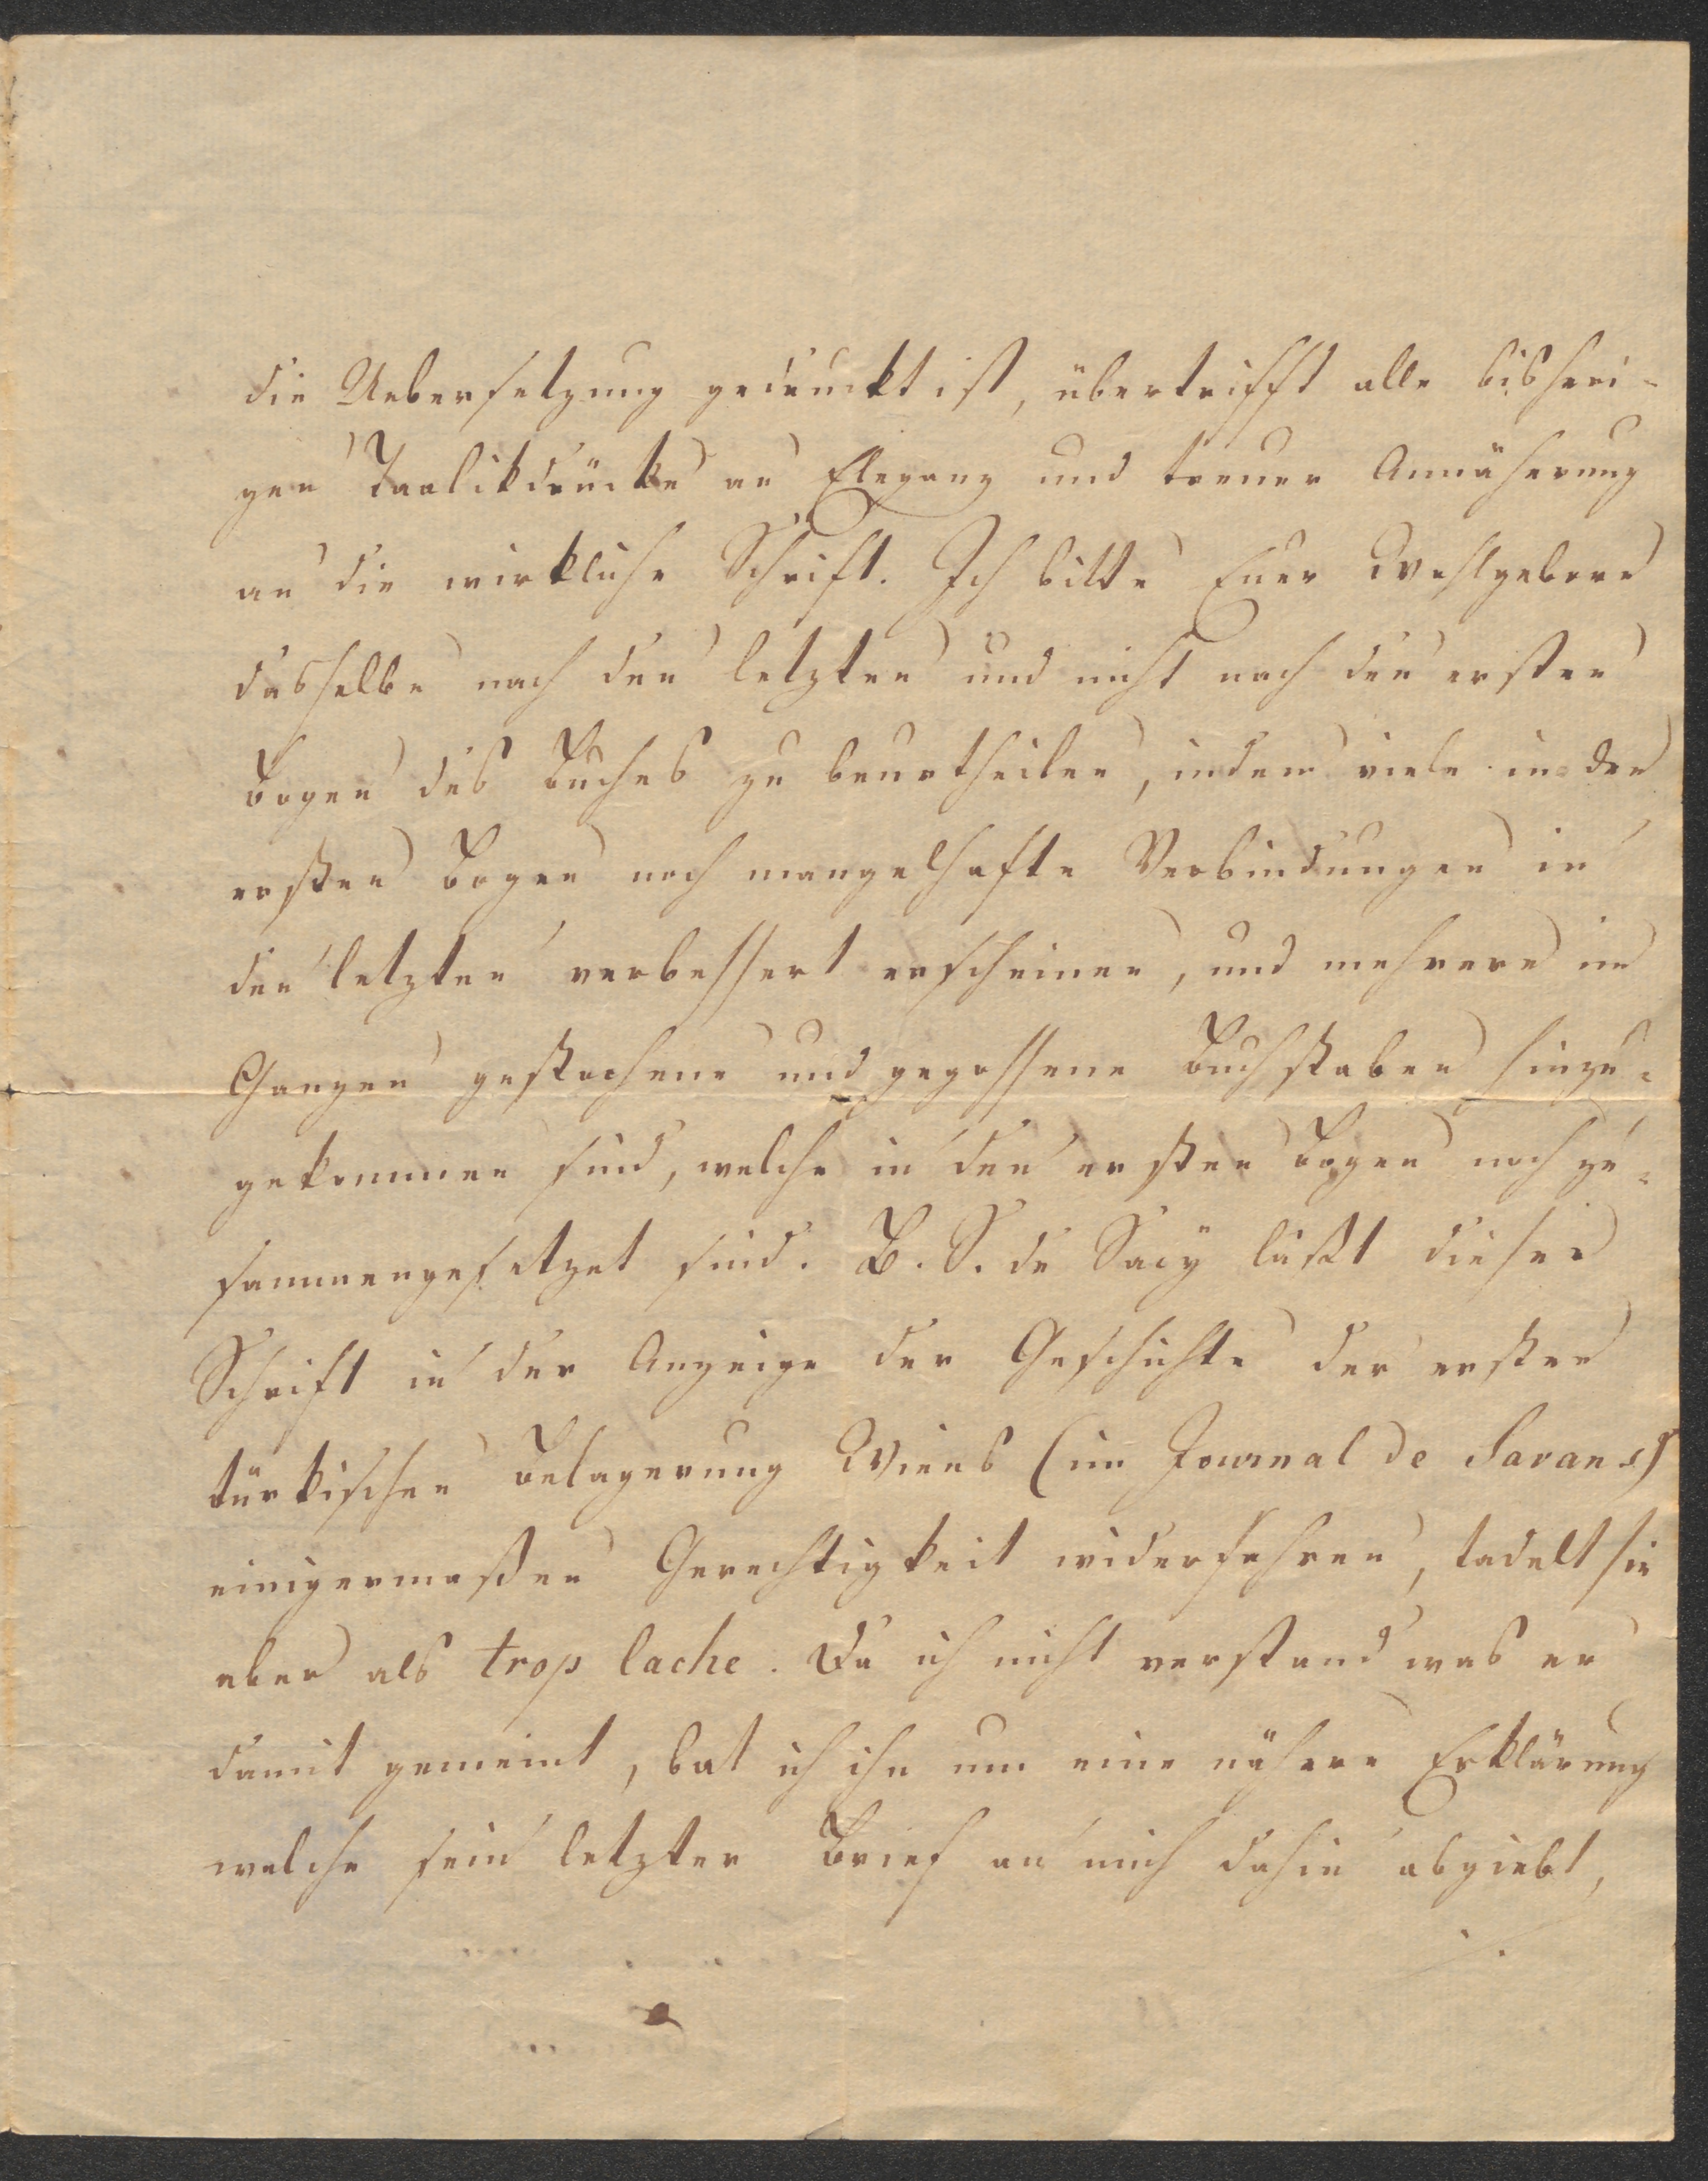 die Uebersetzung gedruckt ist, übertrifft alle bisheri-
gen Taalikdrücke an Eleganz und treuer Annäherung
an die wirkliche Schrift. Ich bitte Euer Wohlgeborn
dasselbe nach den letzten und nicht nach den ersten
Bogen des Buches zu beurtheilen, indem viele in den
ersten Bogen noch mangelhafte Verbindungen in
den letzten verbessert erscheinen, und mehrere im
Ganzen gestochene und gegossene Buchstaben hinzu-
gekommen sind, welche in den ersten Bogen noch zu-
sammengesetzet sind. B. S. de Sacÿ läßt dieser
Schrift in der Anzeige der Geschichte der ersten
türkischen Belagerung Wiens (im Journal de Savans)
einigermaßen Gerechtigkeit widerfahren, tadelt sie
aber als trop lache. Da ich nicht verstand was er
damit gemeint, bat ich ihn um eine nähere Erklärung
welche sein letzter Brief an mich dahin abgiebt,
./.